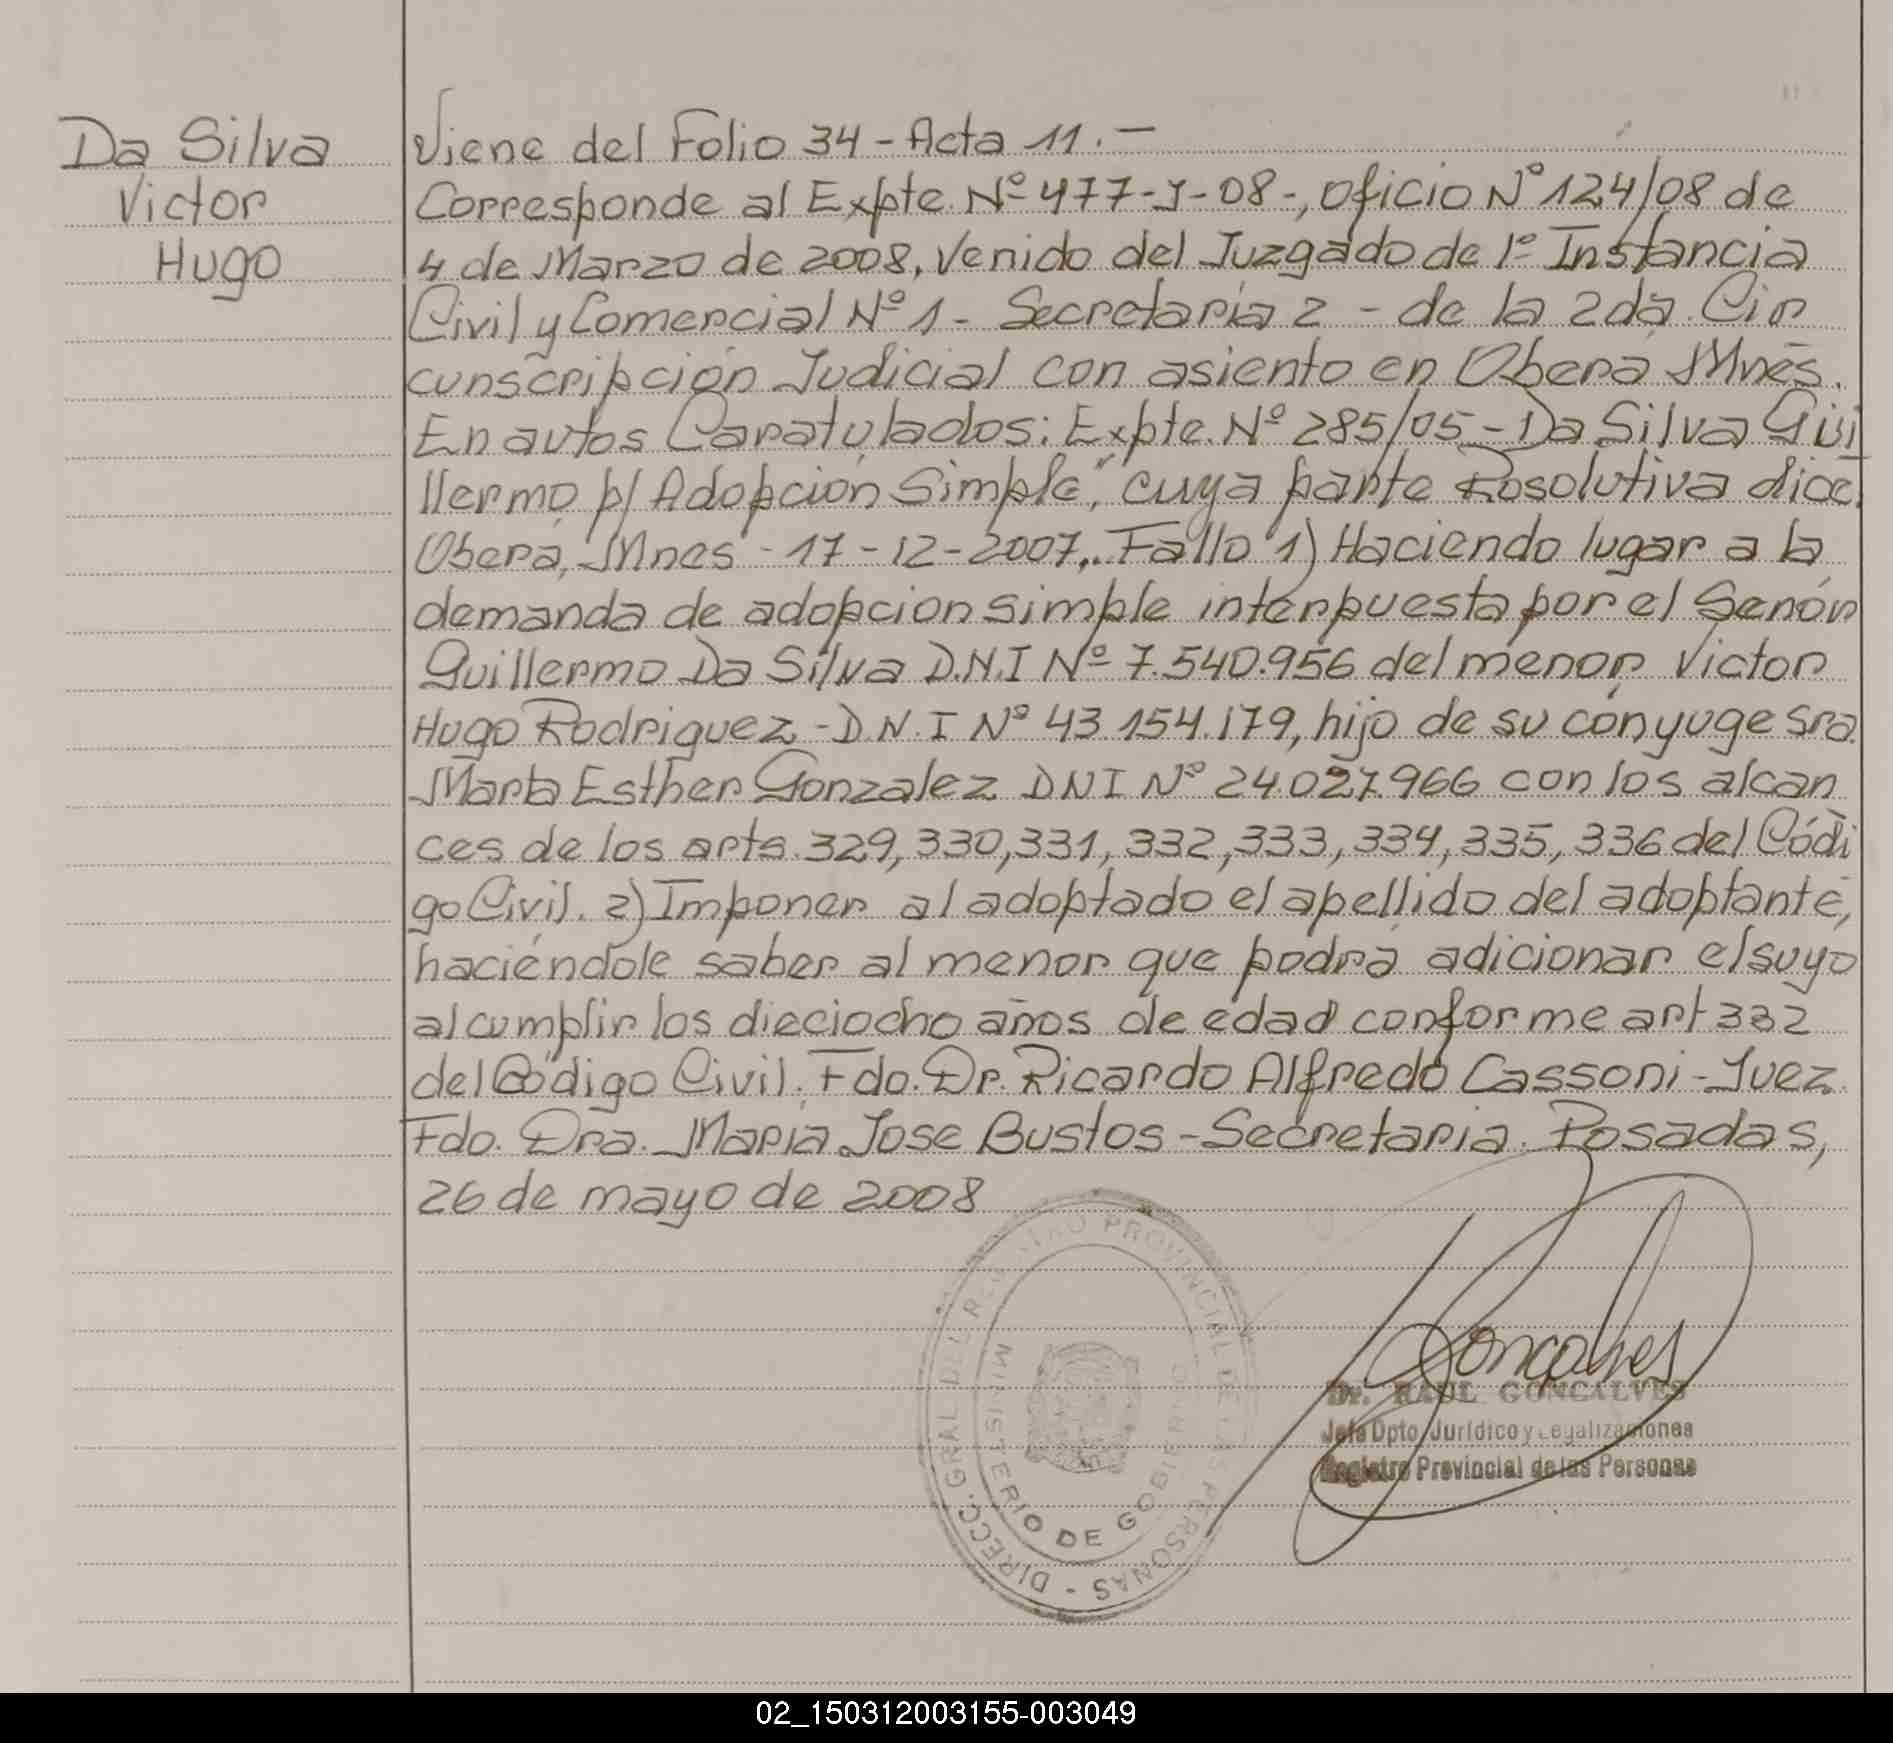 Da Silva
Victor
Hugo
Viene del Folio 34 - Acta 11. -
Corresponde al Expte. Nº 477-J-08-, Oficio Nº 124/08 de
4 de Marzo de 2008, Venido del Juzgado de 1º Instancia
Civil y Comercial Nº 1 - Secretaría 2 - de la 2da. Cir
cunscripción Judicial con asiento en Oberá Mnes.
En autos Caratulados: Expte. Nº 285/05 - Da Silva Gui
llermo p/ Adopción Simple", cuya parte Rosolutiva dice.
Oberá, Mnes - 17-12-2007,.. Fallo 1) Haciendo lugar a la
demanda de adopcion simple interpuesta por el Señor
Guillermo Da Silva D.N.I Nº 7.540.956 del menor Victor
Hugo Rodriguez - D.N.I Nº 43 154.179, hijo de su cónyuge Sra.
Marta Esther Gonzalez DNI Nº 24.027.966 con los alcan
ces de los arts. 329, 330, 331, 332, 333, 334, 335, 336 del Códi
go Civil. 2) Imponer al adoptado el apellido del adoptante,
haciéndole saber al menor que podrá adicionar el suyo
al cumplir los dieciocho años de edad conforme art 332
del Código Civil. Fdo. Dr. Ricardo Alfredo Cassoni - Juez.
Fdo. Dra. María Jose Bustos - Secretaria. Posadas,
26 de mayo de 2008
DIRECC. GRAL. DEL REGISTRO PROVINCIAL DE LAS PERSONAS -
MINISTERIO DE GOBIERNO
Goncalves
Dr. RAUL GONCALVES
Jefe Dpto. Jurídico y Legalizaciones
Registro Provincial de las Personas
02_150312003155-003049